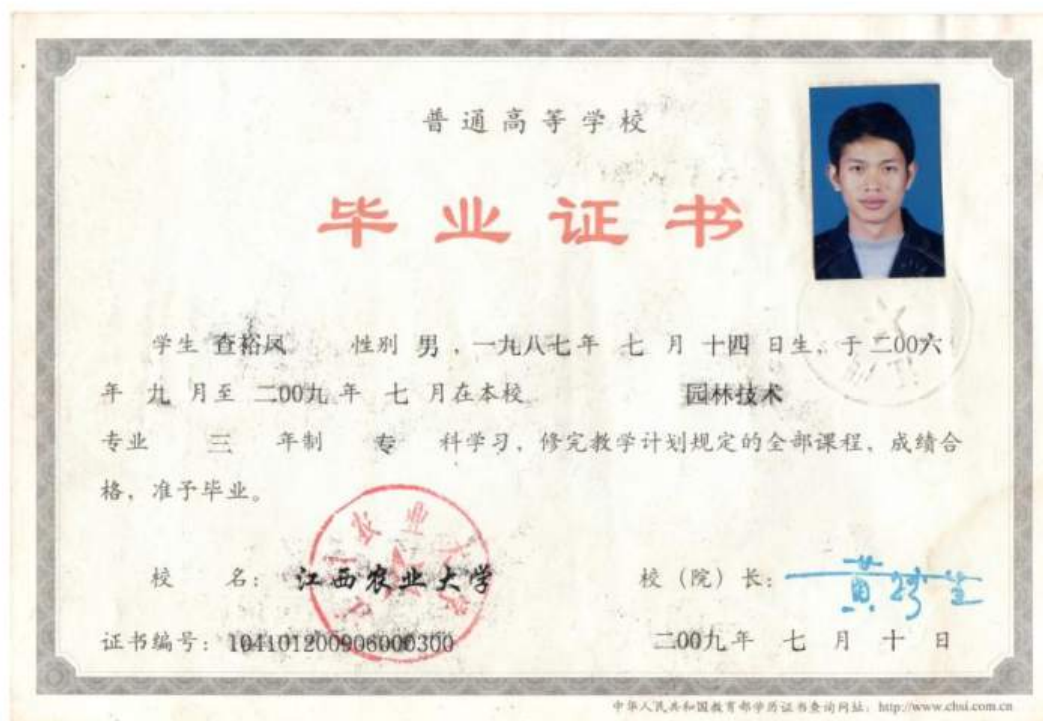 普通高等学校
毕业证书
学生 查裕凤 性别 男，一九八七年 七 月 十四 日生，于二00六
年 九 月至 二00九 年 七 月在本校 园林技术
专业 三 年制 专 科学习，修完教学计划规定的全部课程，成绩合
格，准予毕业。
校 名： 江西农业大学
校（院）长：
证书编号：104101200906000300
二00九年 七 月 十 日
中华人民共和国教育部学历证书查询网址：http://www.chsi.com.cn